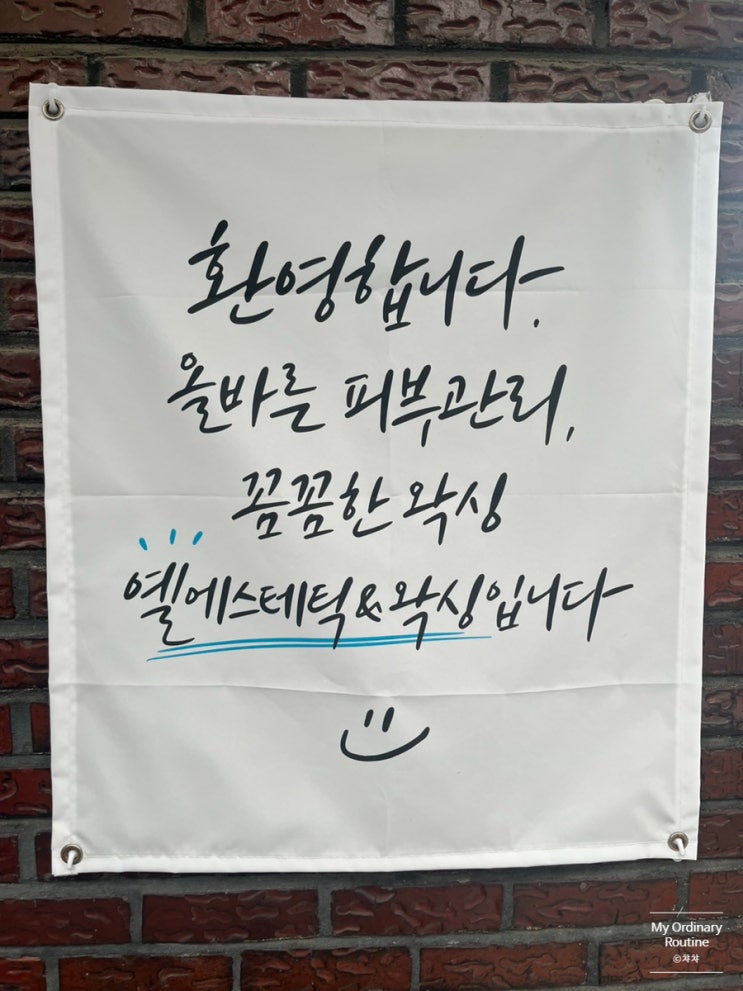 환영합니다.
올바른 피부관리,
꼼꼼한 왁싱
옐에스테틱&왁싱입니다
My Ordinary
Routine
©챠챠